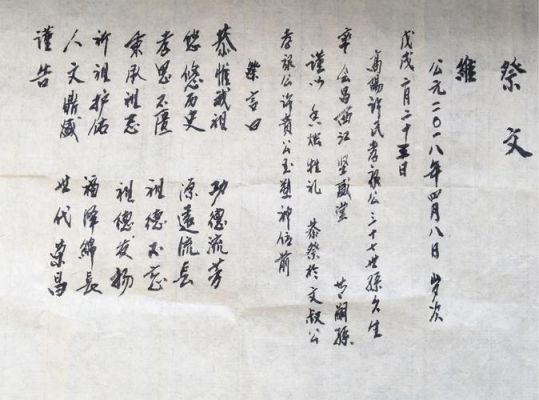 祭文
維
公元二〇一八年四月八日 岁次
戊戌二月二十三日
高陽許氏孝叔公三十七世孫久生
率 会昌西江 坚盛堂 嗣孫
謹以 香烛牲礼 恭祭於文叔公
孝叔公许贵公玉塑神位前
祭言曰
恭惟我祖 功德流芳
悠悠历史 源遠流長
孝思不匱 祖德不忘
秉承祖志 祖德发扬
祈祖护佑 福澤綿長
人文鼎盛 世代荣昌
謹告